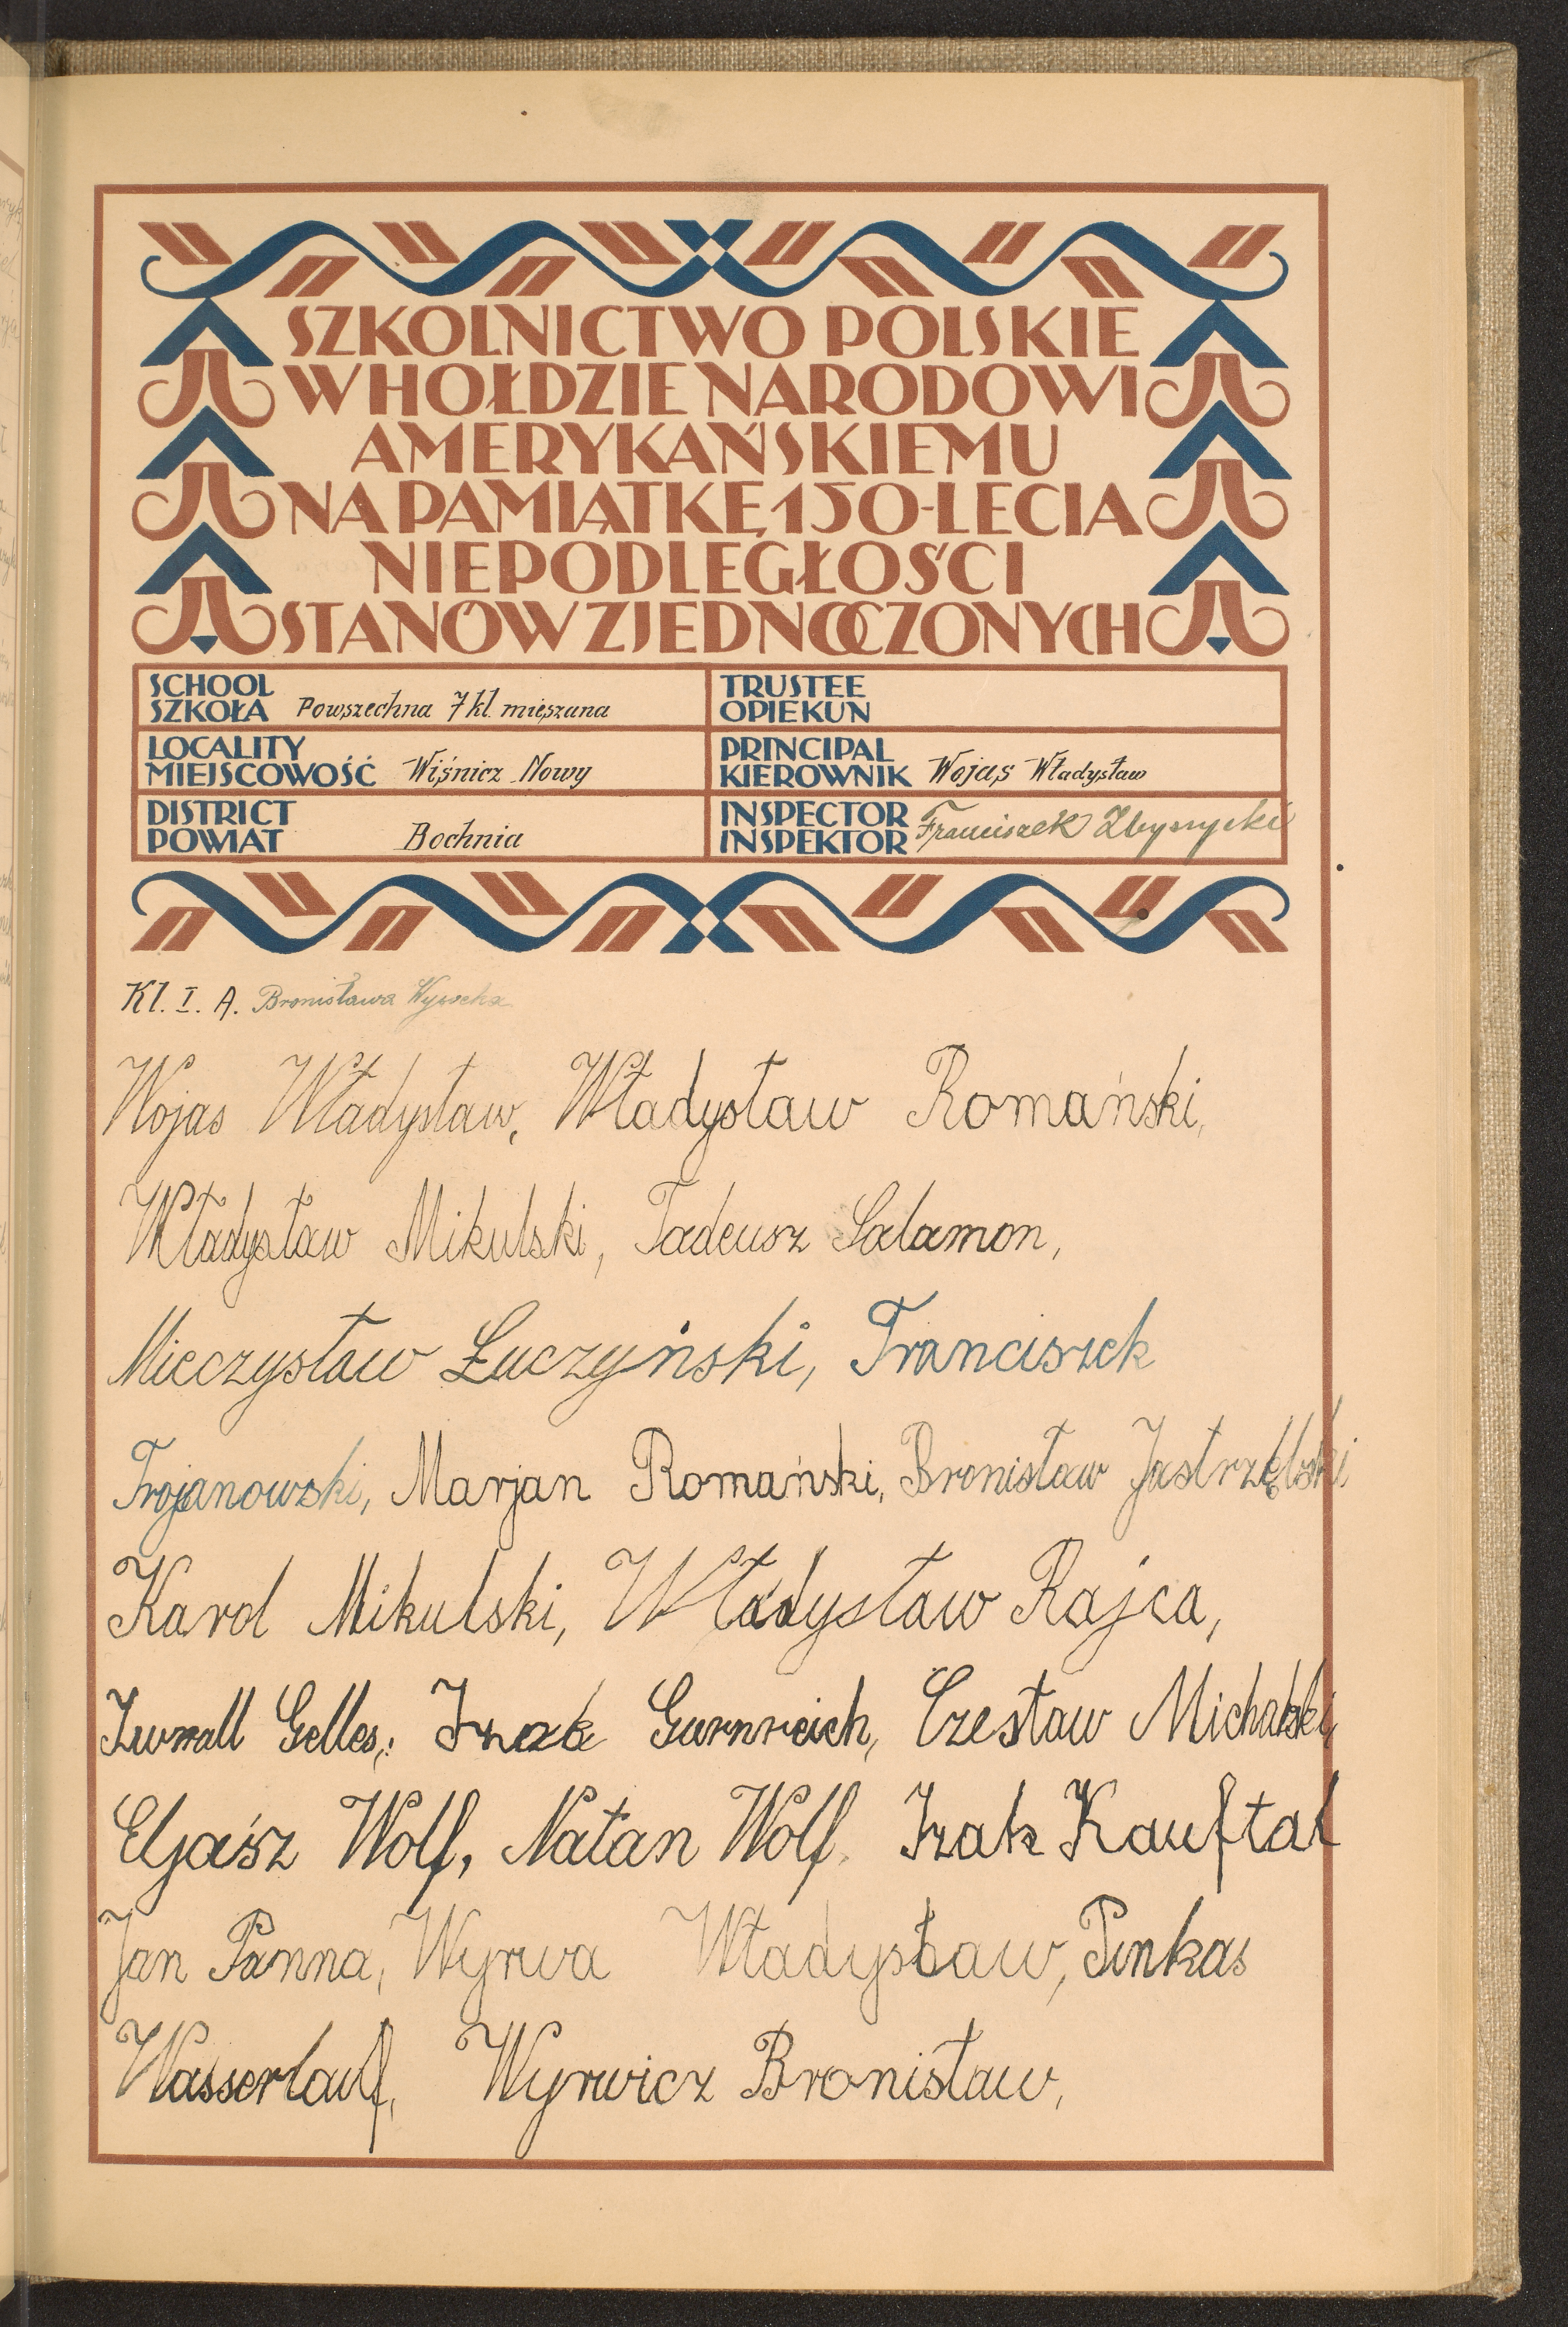 SZKOLNICTWO POLSKIE
W HOŁDZIE NARODOWI
AMERYKAŃSKIEMU
NA PAMIĄTKĘ 150-LECIA
NIEPODLEGŁOŚCI
STANÓW ZJEDNOCZONYCH
SCHOOL
SZKOŁA Powszechna 7 kl. mieszana
TRUSTEE
OPIEKUN
LOCALITY
MIEJSCOWOŚĆ Wiśnicz Nowy
PRINCIPAL
KIEROWNIK Wojas Władysław
DISTRICT
POWIAT Bochnia
INSPECTOR
INSPEKTOR Franciszek
Kl. I. A. Bronisława
Wojas Władysław, Władysław Romański,
Władysław Mikulski, Tadeusz Salamon,
Mieczysław Łuczyński, Franciszek
Trojanowski, Marjan Romański, Bronisław Jastrzębski
Karol Mikulski, Władysław Rajca,
Gelles, Izak Gurnreich, Czesław Michalski,
Eljasz Wolf, Natan Wolf. Izak Kauftal
Jan Panna, Wyrwa Władysław, Pinkas
Wasserlauf, Wyrwicz Bronisław,